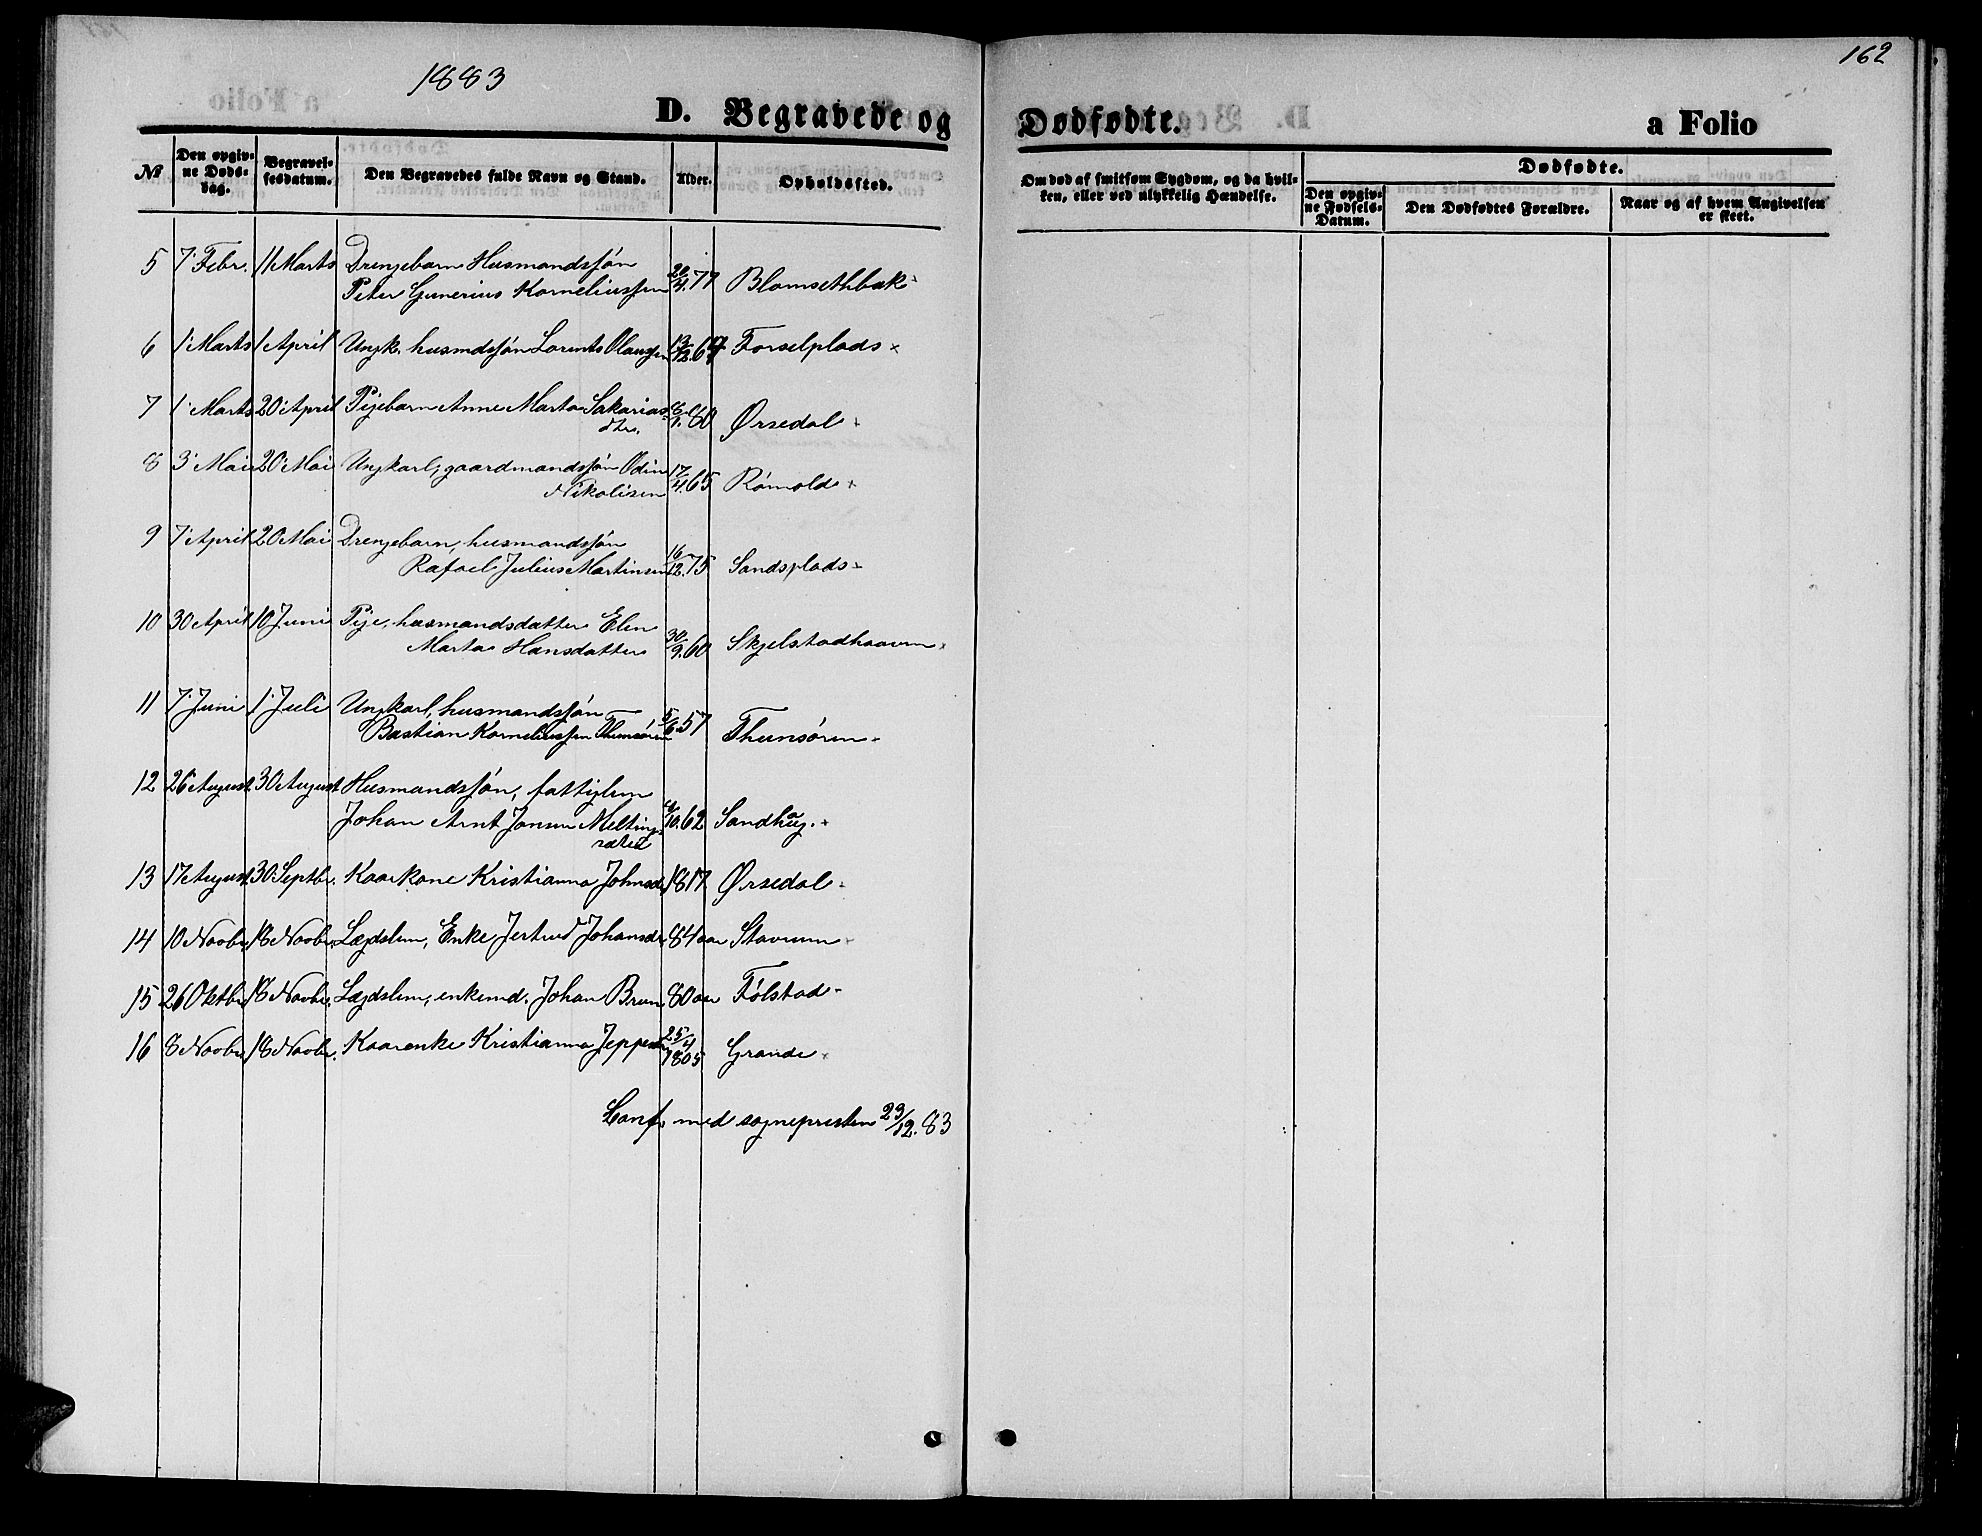 1883
162
D. Begravede og Dødfødte. a Folio
№ Den opgivne Døds-dag. Begravelsesdatum. Den Begravedes fulde Navn og Stand. Alder. Opholdssted. Om død af smitsom Sygdom, og da hvilken, eller ved ulykkelig Hændelse. Dødfødte.
Den opgivne Fødsels-Datum. Den Dødfødtes Forældre. Naar og af hvem Angivelsen er skeet.
5 7 Febr. 11 Marts Drengebarn Husmandssøn
Peter Gunerius Korneliussen 20/4.77 Blomsethbak
6 1 Marts 1 April Ungk. husmdssøn Lorents Olaussen 13/12 67 Forselplads
7 1 Marts 20 April Pigebarn Anne Marta Sakarias
dtr. 8/9.80 Ørsedal
8 3 Mai 20 Mai Ungkarl, gaardmandssøn Odin
Nikolisen 17/4.65 Rømold
9 7 April 20 Mai Drengebarn, husmandssøn
Rafael Julius Martinsen 16/12.75 Sandsplads
10 30 April 10 Juni Pige, husmandsdatter Elen
Marta Hansdatter 30/9.60 Skjelstadhaaven
11 7 Juni 1 Juli Ungkarl, husmandssøn
Bastian Korneliussen Thunsøren 5/6.57 Thunsøren
12 26 August 30 August Husmandssøn, fattiglem
Johan Arnt Jonsen Meltings
sæter 4/10.62 Sandhaug
13 17 August 30 Septbr. Kaarkone Kristianna Johnsdr 1817 Ørsedal
14 10 Novbr 18 Novbr. Lægdslem, Enke Jertrud Johansdr 84 aar Stavrum
15 26 Oktbr 18 Novbr. Lægdslem, enkemd. Johan Brun 80 aar Følstad
16 8 Novbr 18 Novbr. Kaarenke Kristianna Jeppesdr 25/4 1805 Grande
Conf. med sognepresten 23/12.83